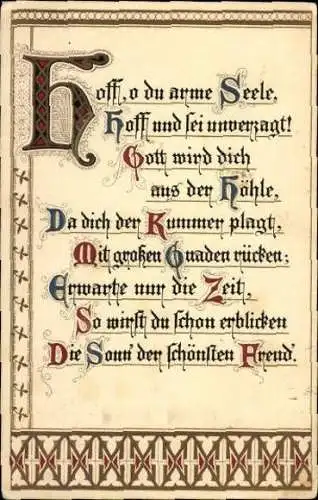 Hoff, o du arme Seele,
Hoff und sei unverzagt!
Gott wird dich
aus der Höhle,
Da dich der Kummer plagt,
Mit großen Gnaden rücken;
Erwarte nur die Zeit,
So wirst du schon erblicken
Die Sonn' der schönsten Freud'.